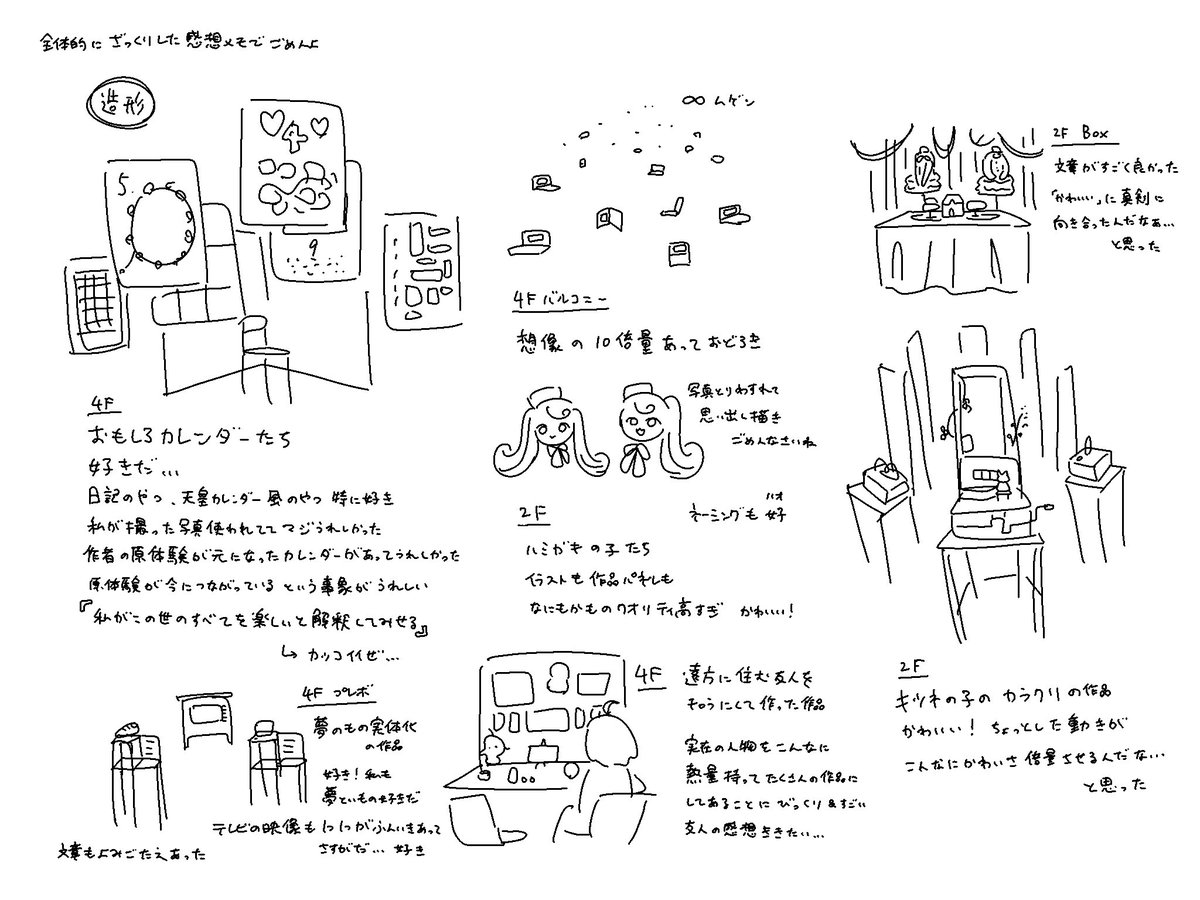 全体的に ざっくりした 感想メモで ごめんよ
造形
5
4
9
4F
おもしろカレンダーたち
好きだ…
日記のやつ、天皇カレンダー風のやつ 特に好き
私が撮った写真使われてて マジうれしかった
作者の原体験が元になったカレンダーがあってうれしかった
原体験が今につながっている という事象がうれしい
『私がこの世のすべてを楽しいと解釈してみせる』
↳ カッコイイぜ…
∞ ムゲン
4F バルコニー
想像の10倍量あっておどろき
写真とりわすれて
思い出し描き
ごめんなさいね
2F
ハミガキの子たち
イラストも作品パネルも
なにもかものクオリティ高すぎ かわいい!
ネーミングも好
ハオ
2F Box
文章がすごく良かった
「かわいい」に真剣に
向き合ったんだなぁ…
と思った
2F
キツネの子の カラクリの作品
かわいい! ちょっとした動きが
こんなにかわいさ倍量させるんだな…
と思った
4F プレボ
夢のもの実体化
の作品
好き! 私も
夢というもの好きだ
テレビの映像も 1つ1つがふんいきあって
さすがだ… 好き
文章もよみごたえあった
4F
遠方に住む友人を
そろうにして作った作品
実在の人物をこんなに
熱量持ってたくさんの作品に
してあることに びっくり&すごい
友人の感想ききたい…